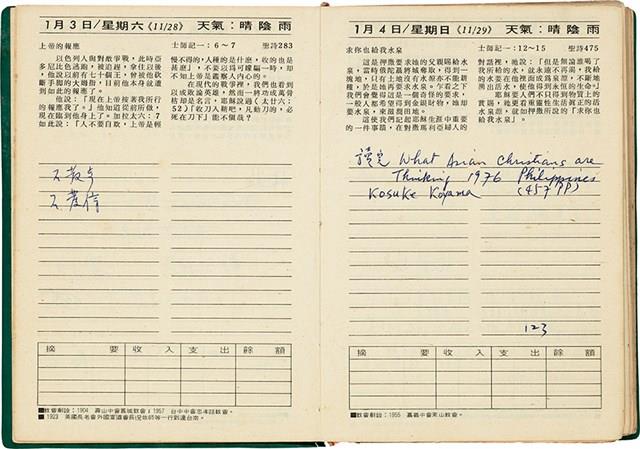 1月3日/星期六《11/28》 天氣:晴陰雨
上帝的報應 士師記一:6~7 聖詩283
以色列人與對敵爭戰,此時亞
多尼比色逃跑,被追趕,拿住以後
,他說以前有七十個王,曾被他砍
斷手脚的大拇指,目前他本身就遭
到如此的報應了。
他說:「現在上帝按著我所行
的報應我了。」他知道從前所做,
現在臨到他身上了。加拉太六:7
如此說:「人不要自欺,上帝是輕
慢不得的,人種的是什麼,收的也是
甚麼」,不要以爲可矇騙一時,却
不知上帝是鑑察人內心的。
在現代的戰爭裡,我們也看到
以成敗論英雄,然而一將功成萬骨
枯却是名言,耶穌說過(太廿六:
52)「收刀入鞘吧,凡動刀的,必
死在刀下」能不儆戒?
不散步
不發信
摘要 收入 支出 餘額
■教會創設:1904 壽山中會舊城教會;1957 台中中會忠孝路教會。
■1923 英國長老會外國宣道會長
1月4日/星期日《11/29》 天氣:晴陰雨
求你也給我水泉 士師記一:12~15 聖詩475
這是押撒要求她的父親賜給水
泉,當時俄陀聶將城奪取,得到一
塊地,只有土地沒有水源亦不能耕
種,於是她再要求水泉。乍看之下
我們會覺得這是一個奇怪的要求,
一般人都希望得到金銀財物,她却
要求水泉,來滋潤田地。
這使我們記起耶穌生涯中重要
的一件事蹟,在對撒馬利亞婦人的
對話裡,祂說:「但是無論誰喝了
我給的水,就永遠不再渴。我給他
的水要在他裡面成爲泉源,不斷地
湧出活水,使他得到永恒的生命。」
耶穌要人們不只得到物質上的
實賜,祂更看重靈性生活眞正的活
水泉源,就如押撒所說的「求你也
給我水泉」。
讀完 What Asian Christians are
Thinking 1976 Philippines
Kosuke Koyama (457PP)
123
摘要 收入 支出 餘額
■教會創設:1955 嘉義中會東山教會。